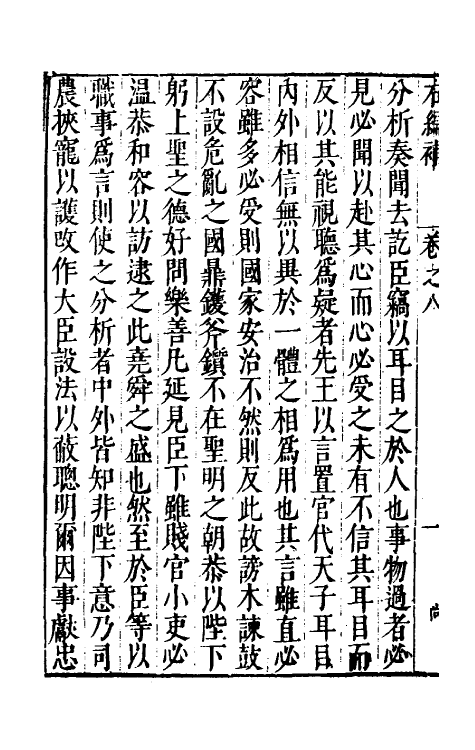 右編補 卷之八 一
分析奏聞去訖臣竊以耳目之於人也事物過者必
見必聞以赴其心而心必受之未有不信其耳目而
反以其能視聽爲疑者先王以言置官代天子耳目
內外相信無以異於一體之相爲用也其言雖直必
容雖多必受則國家安治不然則反此故謗木諫鼓
不設危亂之國鼎鑊斧鑕不在聖明之朝恭以陛下
躬上聖之德好問樂善凡延見臣下雖賤官小吏必
温恭和容以訪逮之此堯舜之盛也然至於臣等以
職事爲言則使之分析者中外皆知非陛下意乃司
農挾寵以護攺作大臣設法以蔽聰明爾因事獻忠